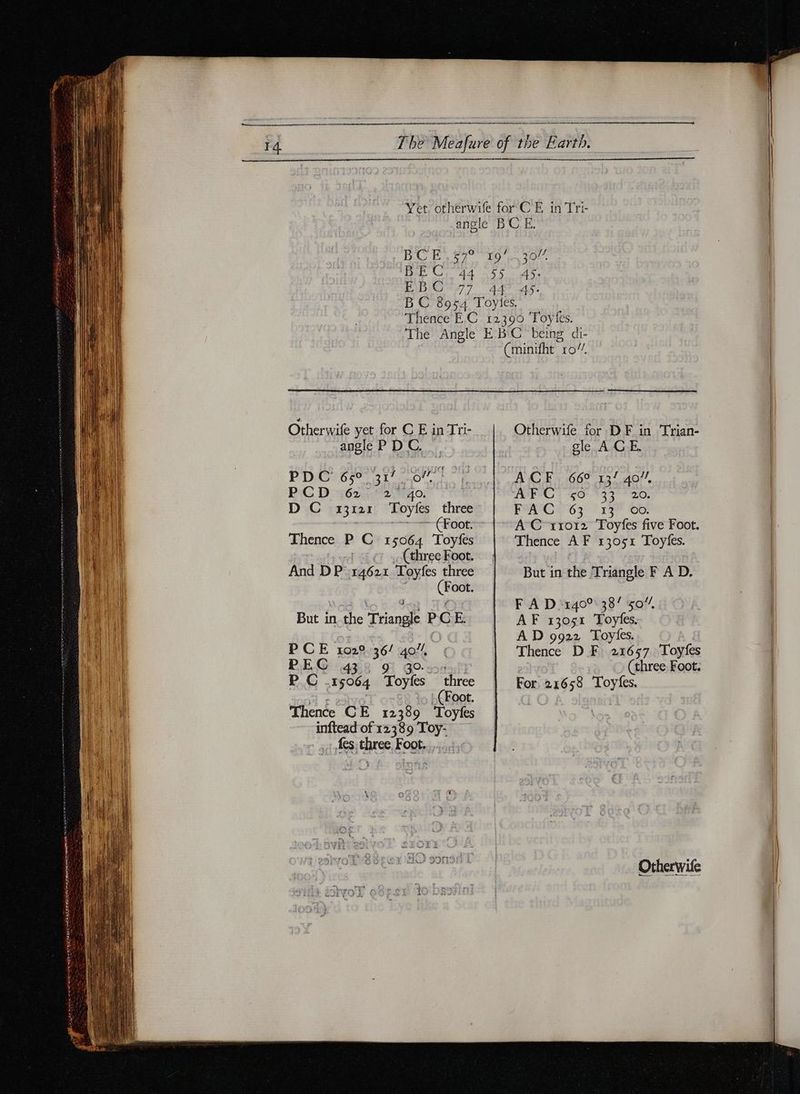 14 The Meaſure of the Earth.
Yet otherwiſe for C E in Tri-
angle B C E.
B C E 57° 19′ 30″.
B E C 44 55 45.
E B C 77 44 45.
B C 8954 Toyſes.
Thence E C 12390 Toyſes.
The Angle E B C being di-
(miniſht 10″.
Otherwiſe yet for C E in Tri-
angle P D C.
P D C 65° 31′ 0″.
P C D 62 2 40.
D C 13121 Toyſes three
(Foot.
Thence P C 15064 Toyſes
(three Foot.
And D P 14621 Toyſes three
(Foot.
But in the Triangle P C E.
P C E 102° 36′ 40″.
P E C 43 9 30.
P C 15064 Toyſes three
(Foot.
Thence C E 12389 Toyſes
inſtead of 12389 Toy-
ſes three Foot.
Otherwiſe for D F in Trian-
gle A C E.
A C F 66° 13′ 40″.
A F C 50 33 20.
F A C 63 13 00.
A C 11012 Toyſes five Foot.
Thence A F 13051 Toyſes.
But in the Triangle F A D.
F A D 140° 38′ 50″.
A F 13051 Toyſes.
A D 9922 Toyſes.
Thence D F 21657 Toyſes
(three Foot.
For 21658 Toyſes.
Otherwiſe